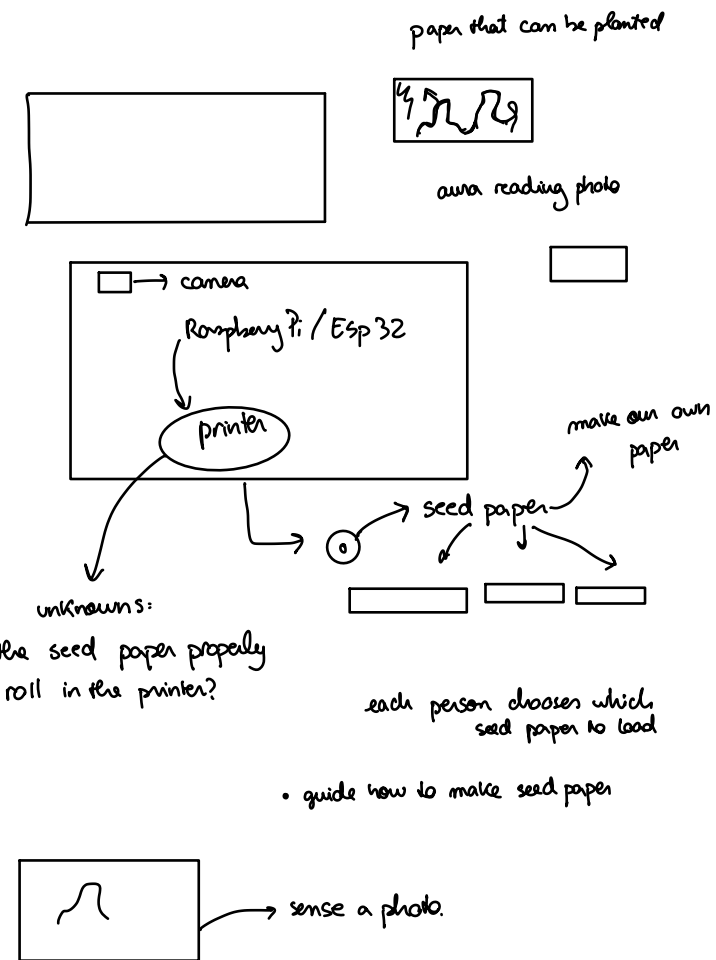 paper that can be planted
aura reading photo
camera
Raspberry Pi / Esp 32
printer
make our own
paper
seed paper
unknowns:
the seed paper properly
roll in the printer?
each person chooses which
seed paper to load
• guide how to make seed paper
sense a photo.